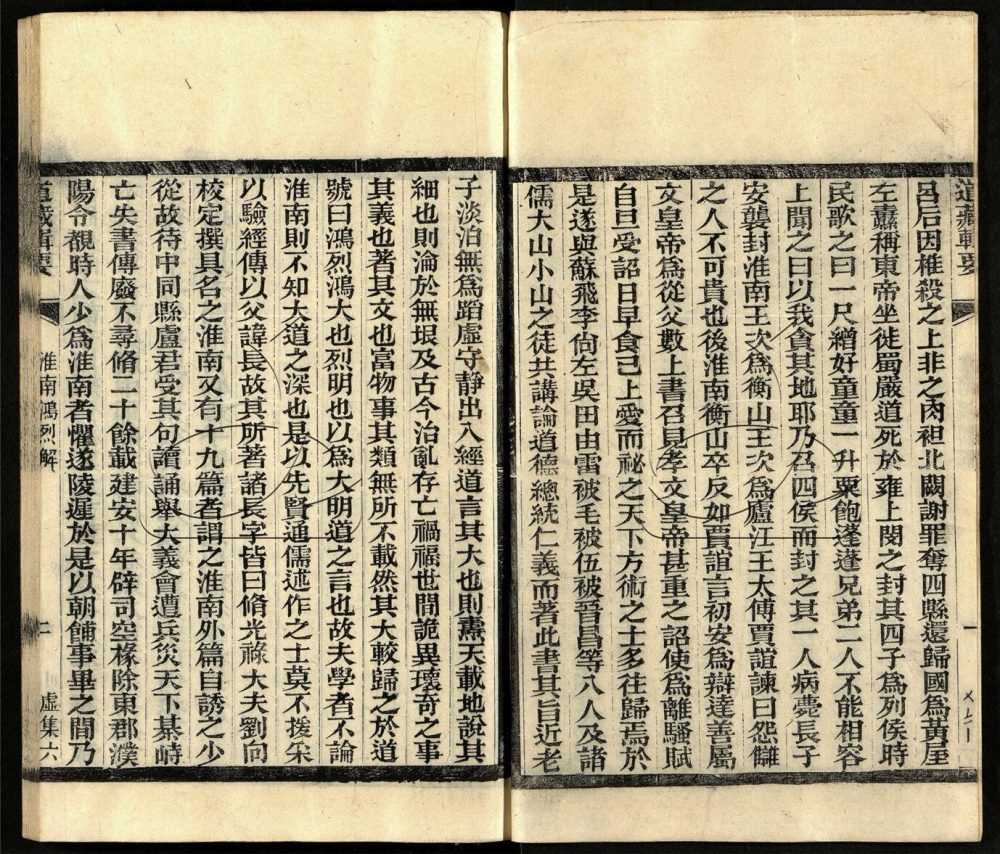 道藏輯要
呂后因椎殺之上非之肉袒北闕謝罪奪四縣還歸國為黃屋
左纛稱東帝坐徙蜀嚴道死於雍上閔之封其四子為列侯時
民歌之曰一尺繒好童童一升粟飽蓬蓬兄弟二人不能相容
上聞之曰以我貪其地耶乃召四侯而封之其一人病薨長子
安襲封淮南王次為衡山王次為廬江王太傅賈誼諫曰怨讎
之人不可貴也後淮南衡山卒反如賈誼言初安為辯達善屬
文皇帝為從父數上書召見孝文皇帝甚重之詔使為離騷賦
自旦受詔日早食已上愛而祕之天下方術之士多往歸焉於
是遂與蘇飛李尚左吳田由雷被毛被伍被晉昌等八人及諸
儒大山小山之徒共講論道德總統仁義而著此書其旨近老
子淡泊無為蹈虛守靜出入經道言其大也則燾天載地說其
細也則淪於無垠及古今治亂存亡禍福世間詭異瓌奇之事
其義也著其文也富物事其類無所不載然其大較歸之於道
號曰鴻烈鴻大也烈明也以為大明道之言也故夫學者不論
淮南則不知大道之深也是以先賢通儒述作之士莫不援采
以驗經傳以父諱長故其所著諸長字皆曰脩光祿大夫劉向
校定撰具名之淮南又有十九篇者謂之淮南外篇自誘之少
從故侍中同縣盧君受其句讀誦舉大義會遭兵災天下棊峙
亡失書傳廢不尋脩二十餘載建安十年辟司空椽除東郡濮
陽令覩時人少為淮南者懼遂陵遲於是以朝餔事畢之間乃
道藏輯要 淮南鴻烈解 二 虛集六